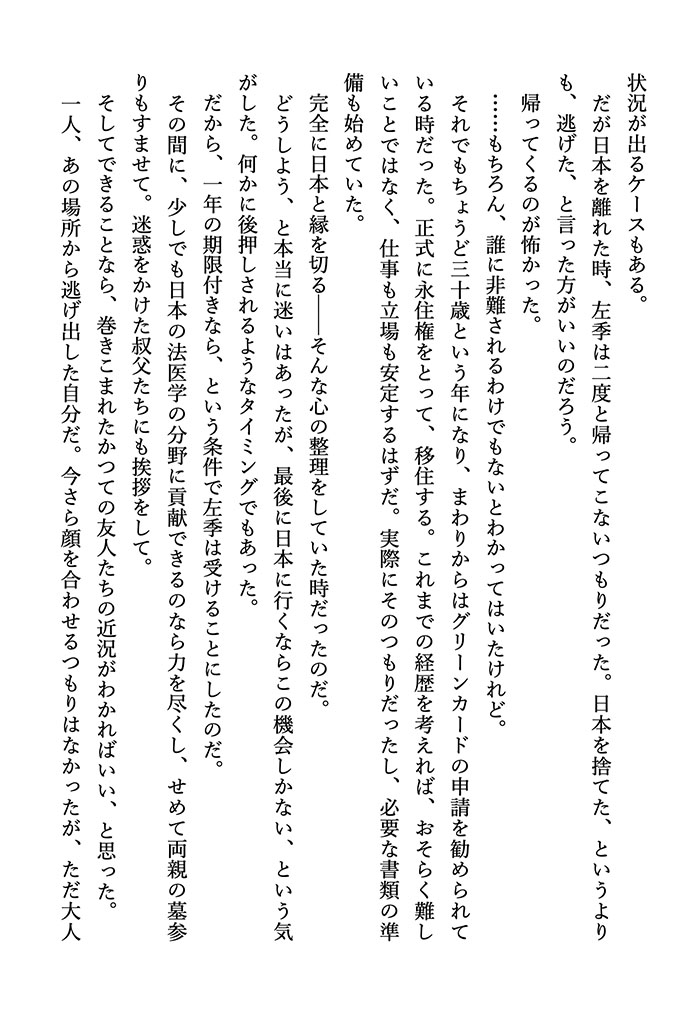 状況が出るケースもある。
　だが日本を離れた時、左季は二度と帰ってこないつもりだった。日本を捨てた、というより
も、逃げた、と言った方がいいのだろう。
　帰ってくるのが怖かった。
　……もちろん、誰に非難されるわけでもないとわかってはいたけれど。
　それでもちょうど三十歳という年になり、まわりからはグリーンカードの申請を勧められて
いる時だった。正式に永住権をとって、移住する。これまでの経歴を考えれば、おそらく難し
いことではなく、仕事も立場も安定するはずだ。実際にそのつもりだったし、必要な書類の準
備も始めていた。
　完全に日本と縁を切る――そんな心の整理をしていた時だったのだ。
　どうしよう、と本当に迷いはあったが、最後に日本に行くならこの機会しかない、という気
がした。何かに後押しされるようなタイミングでもあった。
　だから、一年の期限付きなら、という条件で左季は受けることにしたのだ。
　その間に、少しでも日本の法医学の分野に貢献できるのなら力を尽くし、せめて両親の墓参
りもすませて。迷惑をかけた叔父たちにも挨拶をして。
　そしてできることなら、巻きこまれたかつての友人たちの近況がわかればいい、と思った。
　一人、あの場所から逃げ出した自分だ。今さら顔を合わせるつもりはなかったが、ただ大人